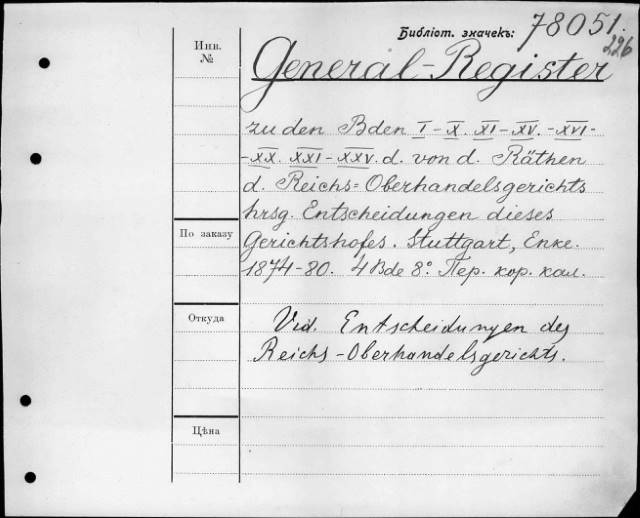 Библіот. значекъ: 78051.
226
Инв.
№
General-Register
zu den Bden I-X. XI-XV.-XVI-
-XX. XXI-XXV. d. von d. Räthen
d. Reichs=Oberhandelsgerichts
hrsg. Entscheidungen dieses
По заказу
Gerichtshofes. Stuttgart, Enke.
1874-80. 4 Bde 8º. Пер. кор. кал.
Откуда
Vid. Entscheidungen des
Reichs-Oberhandelsgerichts.
Цѣна